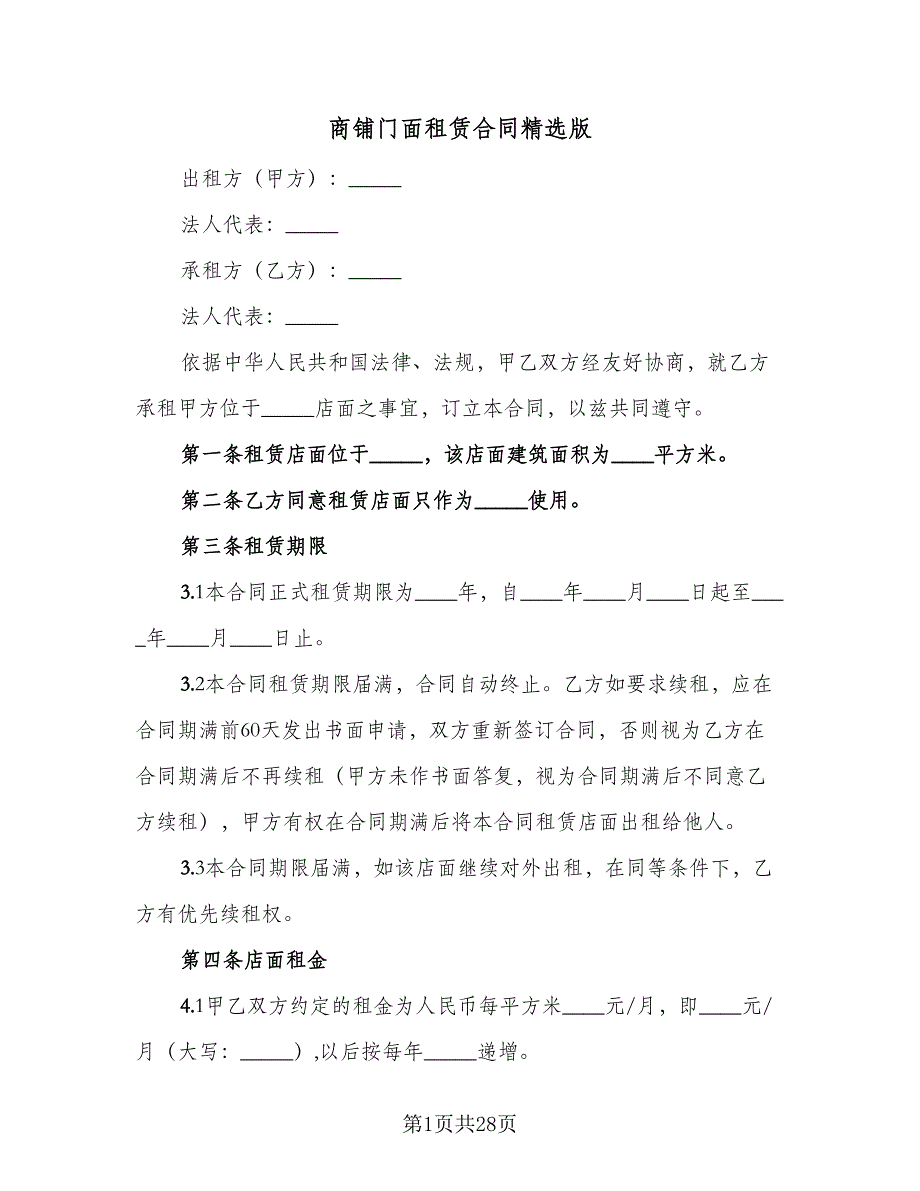 商铺门面租赁合同精选版
出租方（甲方）：_____
法人代表：_____
承租方（乙方）：_____
法人代表：_____
依据中华人民共和国法律、法规，甲乙双方经友好协商，就乙方
承租甲方位于_____店面之事宜，订立本合同，以兹共同遵守。
第一条租赁店面位于_____，该店面建筑面积为____平方米。
第二条乙方同意租赁店面只作为_____使用。
第三条租赁期限
3.1本合同正式租赁期限为____年，自____年____月____日起至___
_年____月____日止。
3.2本合同租赁期限届满，合同自动终止。乙方如要求续租，应在
合同期满前60天发出书面申请，双方重新签订合同，否则视为乙方在
合同期满后不再续租（甲方未作书面答复，视为合同期满后不同意乙
方续租），甲方有权在合同期满后将本合同租赁店面出租给他人。
3.3本合同期限届满，如该店面继续对外出租，在同等条件下，乙
方有优先续租权。
第四条店面租金
4.1甲乙双方约定的租金为人民币每平方米____元/月，即____元/
月（大写：_____）,以后按每年_____递增。
第1页共28页